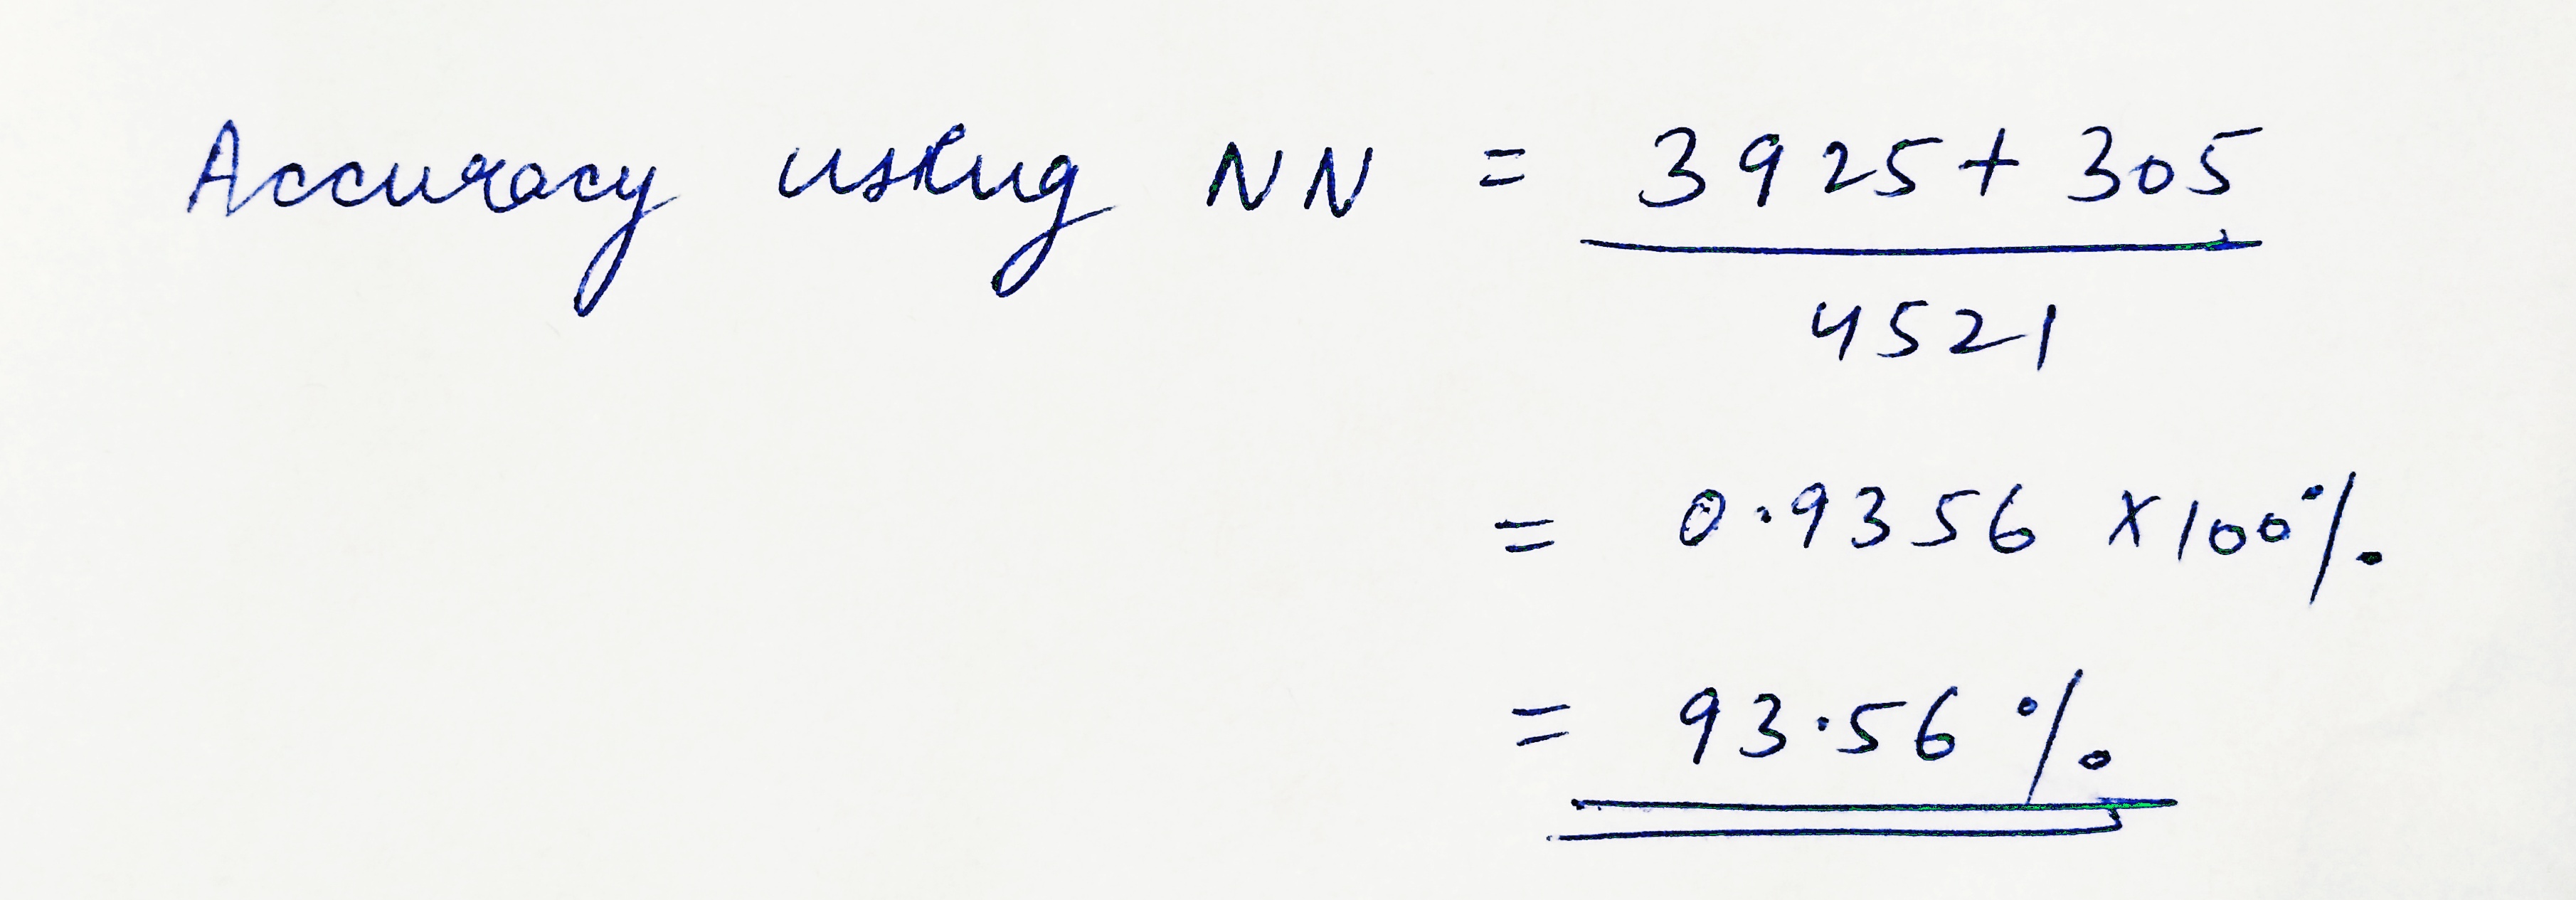 Accuracy using NN = 3925 + 305
4521
= 0.9356 × 100%
= 93.56%